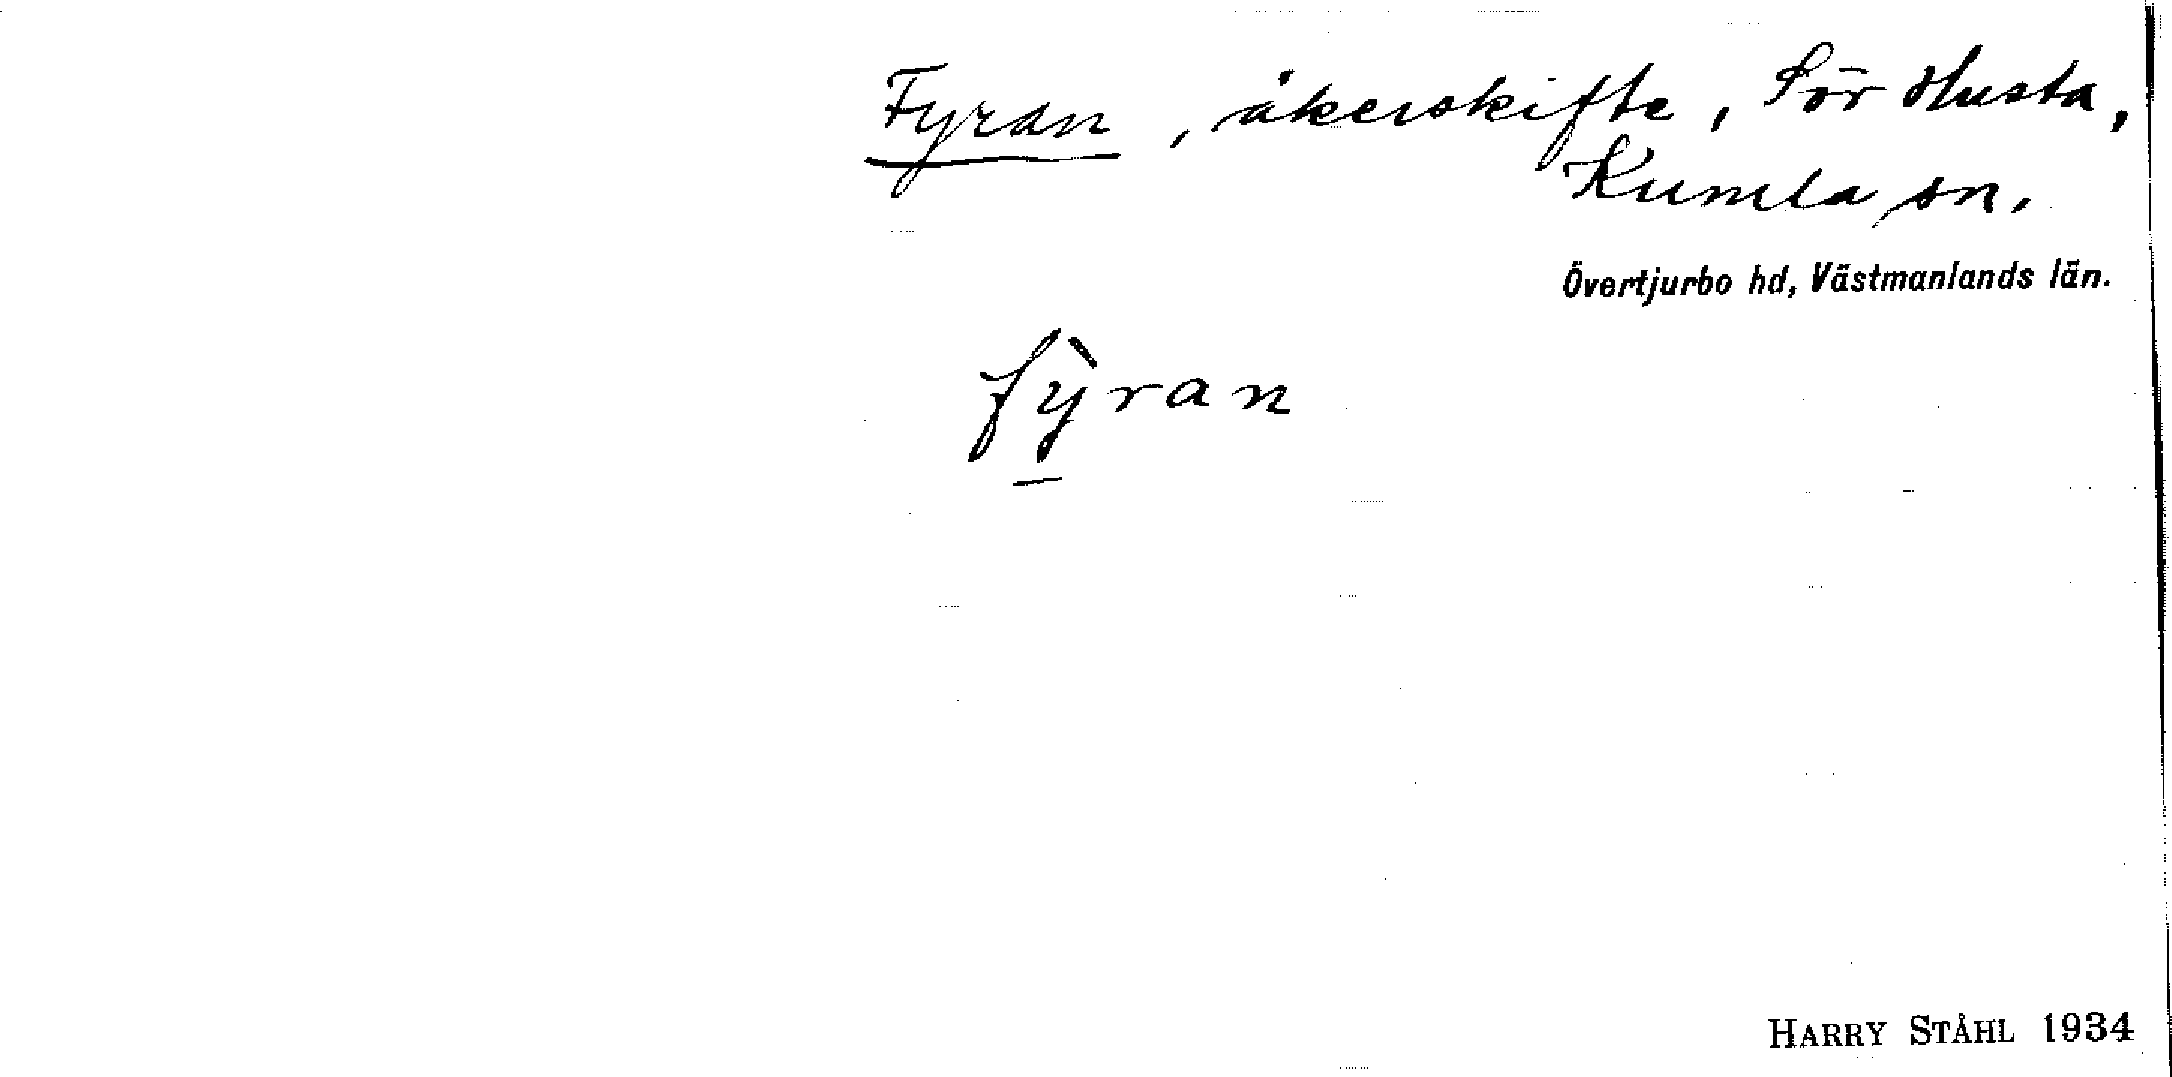 Fyran, åkerskifte, Sör Husta,
Kumla sn.
Övertjurbo hd, Västmanlands län.
fỳran
HARRY STÅHL 1934